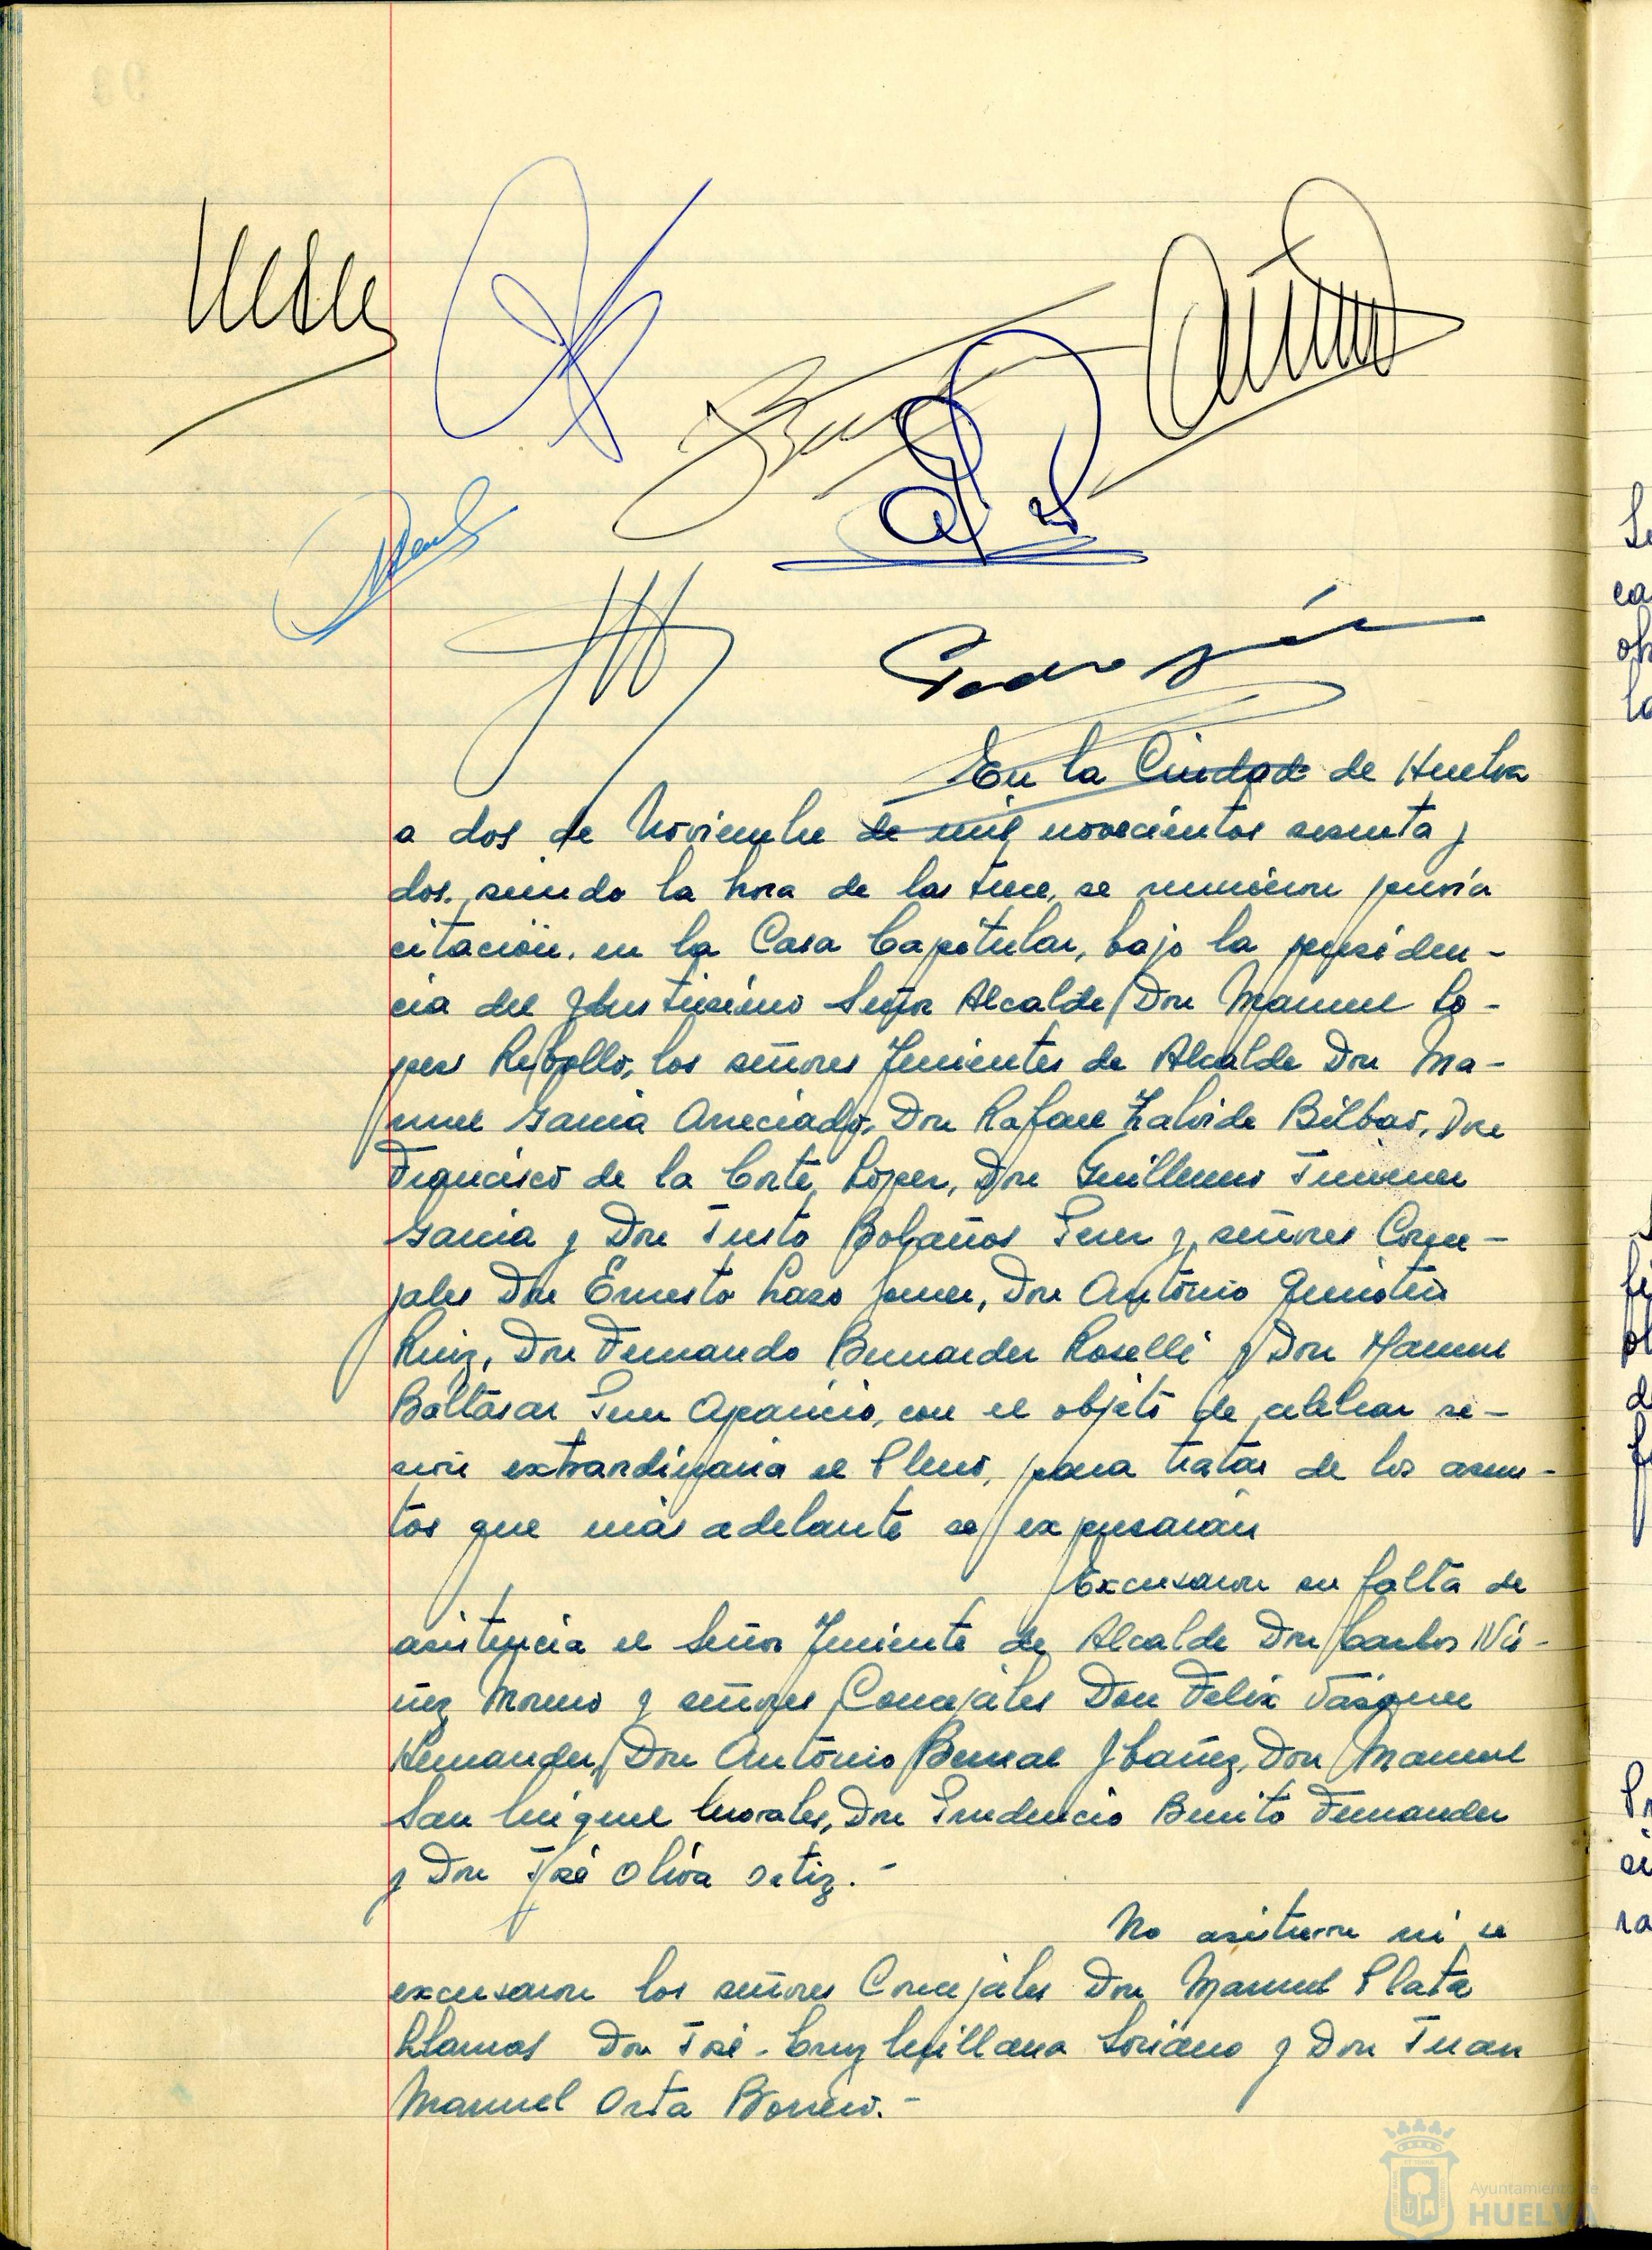 En la Ciudad de Huelva
a dos de Noviembre de mil novecientos sesenta y
dos, siendo la hora de las trece, se reunieron previa
citación, en la Casa Capitular, bajo la presiden-
cia del Ilustrísimo Señor Alcalde Don Manuel Lo-
pez Rebollo, los señores Tenientes de Alcalde Don Ma-
nuel Garcia Arreciado, Don Rafael Zalvide Bilbao, Don
Francisco de la Corte López, Don Guillermo Jimenez
Garcia y Don Justo Bolaños Perez y señores Conce-
jales Don Ernesto Lazo Don Antonio
Ruiz, Don Fernando Bernardez Roselli y Don Manuel
Baltasar Perez Aparicio, con el objeto de celebrar se-
sión extraordinaria el Pleno, para tratar de los asun-
tos que más adelante se expresarán
Excusaron su falta de
asistencia el Señor Teniente de Alcalde Don Carlos Nú-
ñez Moreno y señores Concejales Don Felix Vásquez
Hernandez, Don Antonio Bernal Ibañez, Don Manuel
San Miguel Morales, Don Prudencio Benito Fernandez
y Don José Oliva Ortiz.-
No asistieron ni se
excusaron los señores Concejales Don Manuel Plata
Llamas Don José-Cruz Millana Soriano y Don Juan
Manuel Orta Borrero.-
Ayuntamiento de
HUELVA